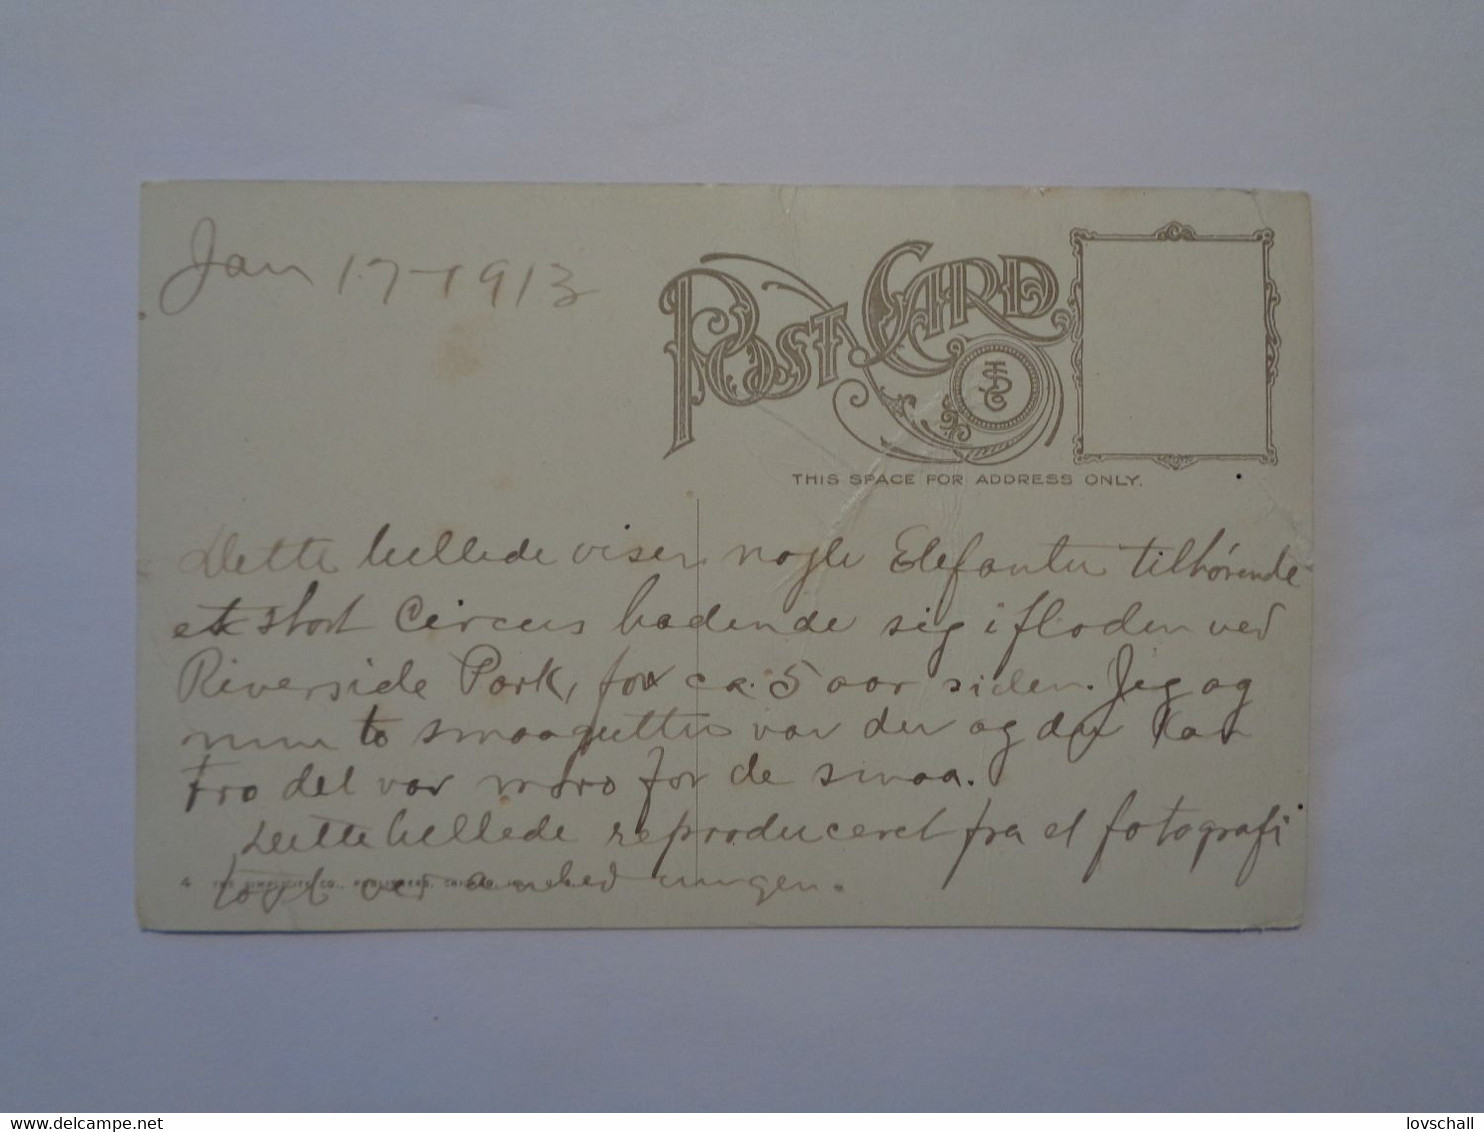 Jan 17-1913
POST CARD
THIS SPACE FOR ADDRESS ONLY.
Dette billede viser nogle Elefanter tilhørende
et stort Circus badende sig i floden ved
Riverside Park, for ca. 5 aar siden. Jeg og
mine to smaagutter var der og du kan
tro det var moro for de smaa.
Dette billede reproduceret fra et fotografi
4 THE CO., PUBLISHERS,
tagt ved anledningen.
delcampe.net
lovschall